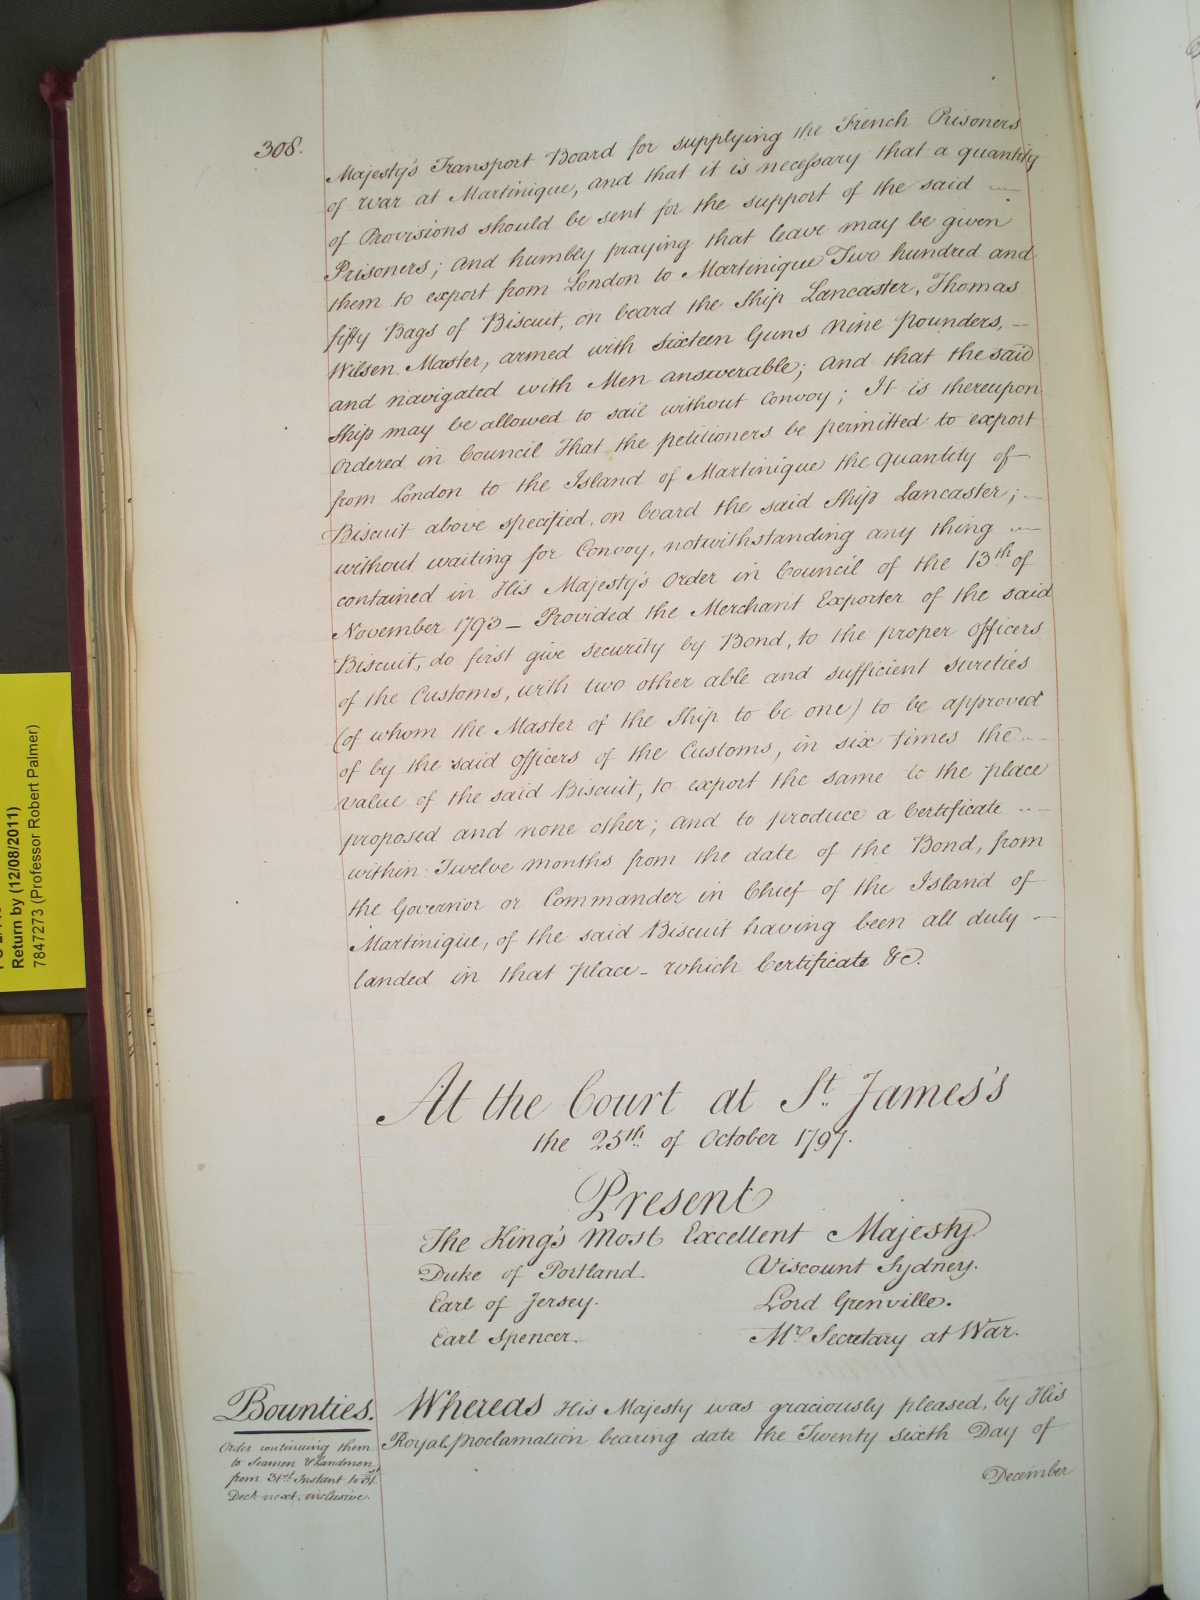 308.
Majesty's Transport Board for supplying the French Prisoners
of war at Martinique, and that it is necessary that a quantity
of Provisions should be sent for the support of the said
Prisoners; And humbly praying that leave may be given
them to export from London to Martinique Two hundred and
fifty Bags of Biscuit, on board the Ship Lancaster, Thomas
Wilson Master, armed with sixteen Guns Nine pounders, –
and navigated with Men answerable; And that the said
Ship may be allowed to sail without Convoy; It is thereupon
Ordered in Council That the petitioners be permitted to export
from London to the Island of Martinique the quantity of
Biscuit above specified, on board the said Ship Lancaster;
without waiting for Convoy, notwithstanding any thing
contained in His Majesty's Order in Council of the 13th of
November 1793 – Provided the Merchant Exporter of the said
Biscuit, do first give security by Bond, to the proper Officers
of the Customs, with two other able and sufficient sureties
(of whom the Master of the Ship to be one) to be approved
of by the said Officers of the Customs, in six times the
value of the said Biscuit, to export the same to the place
proposed and none other; And to produce a Certificate
within Twelve months from the date of the Bond, from
the Governor or Commander in Chief of the Island of
Martinique, of the said Biscuit having been all duly –
landed in that place – which Certificate &c.
At the Court at St. James's
the 25th of October 1797.
Present
The King's Most Excellent Majesty
Duke of Portland. Viscount Sydney.
Earl of Jersey. Lord Grenville.
Earl Spencer. Mr. Secretary at War.
Bounties.
Order continuing them
to Seamen & Landmen
from 31st Instant to 31st
Decr. next, inclusive.
Whereas His Majesty was graciously pleased, by His
Royal Proclamation bearing date the Twenty sixth Day of
December
Return by (12/08/2011)
7847273 (Professor Robert Palmer)